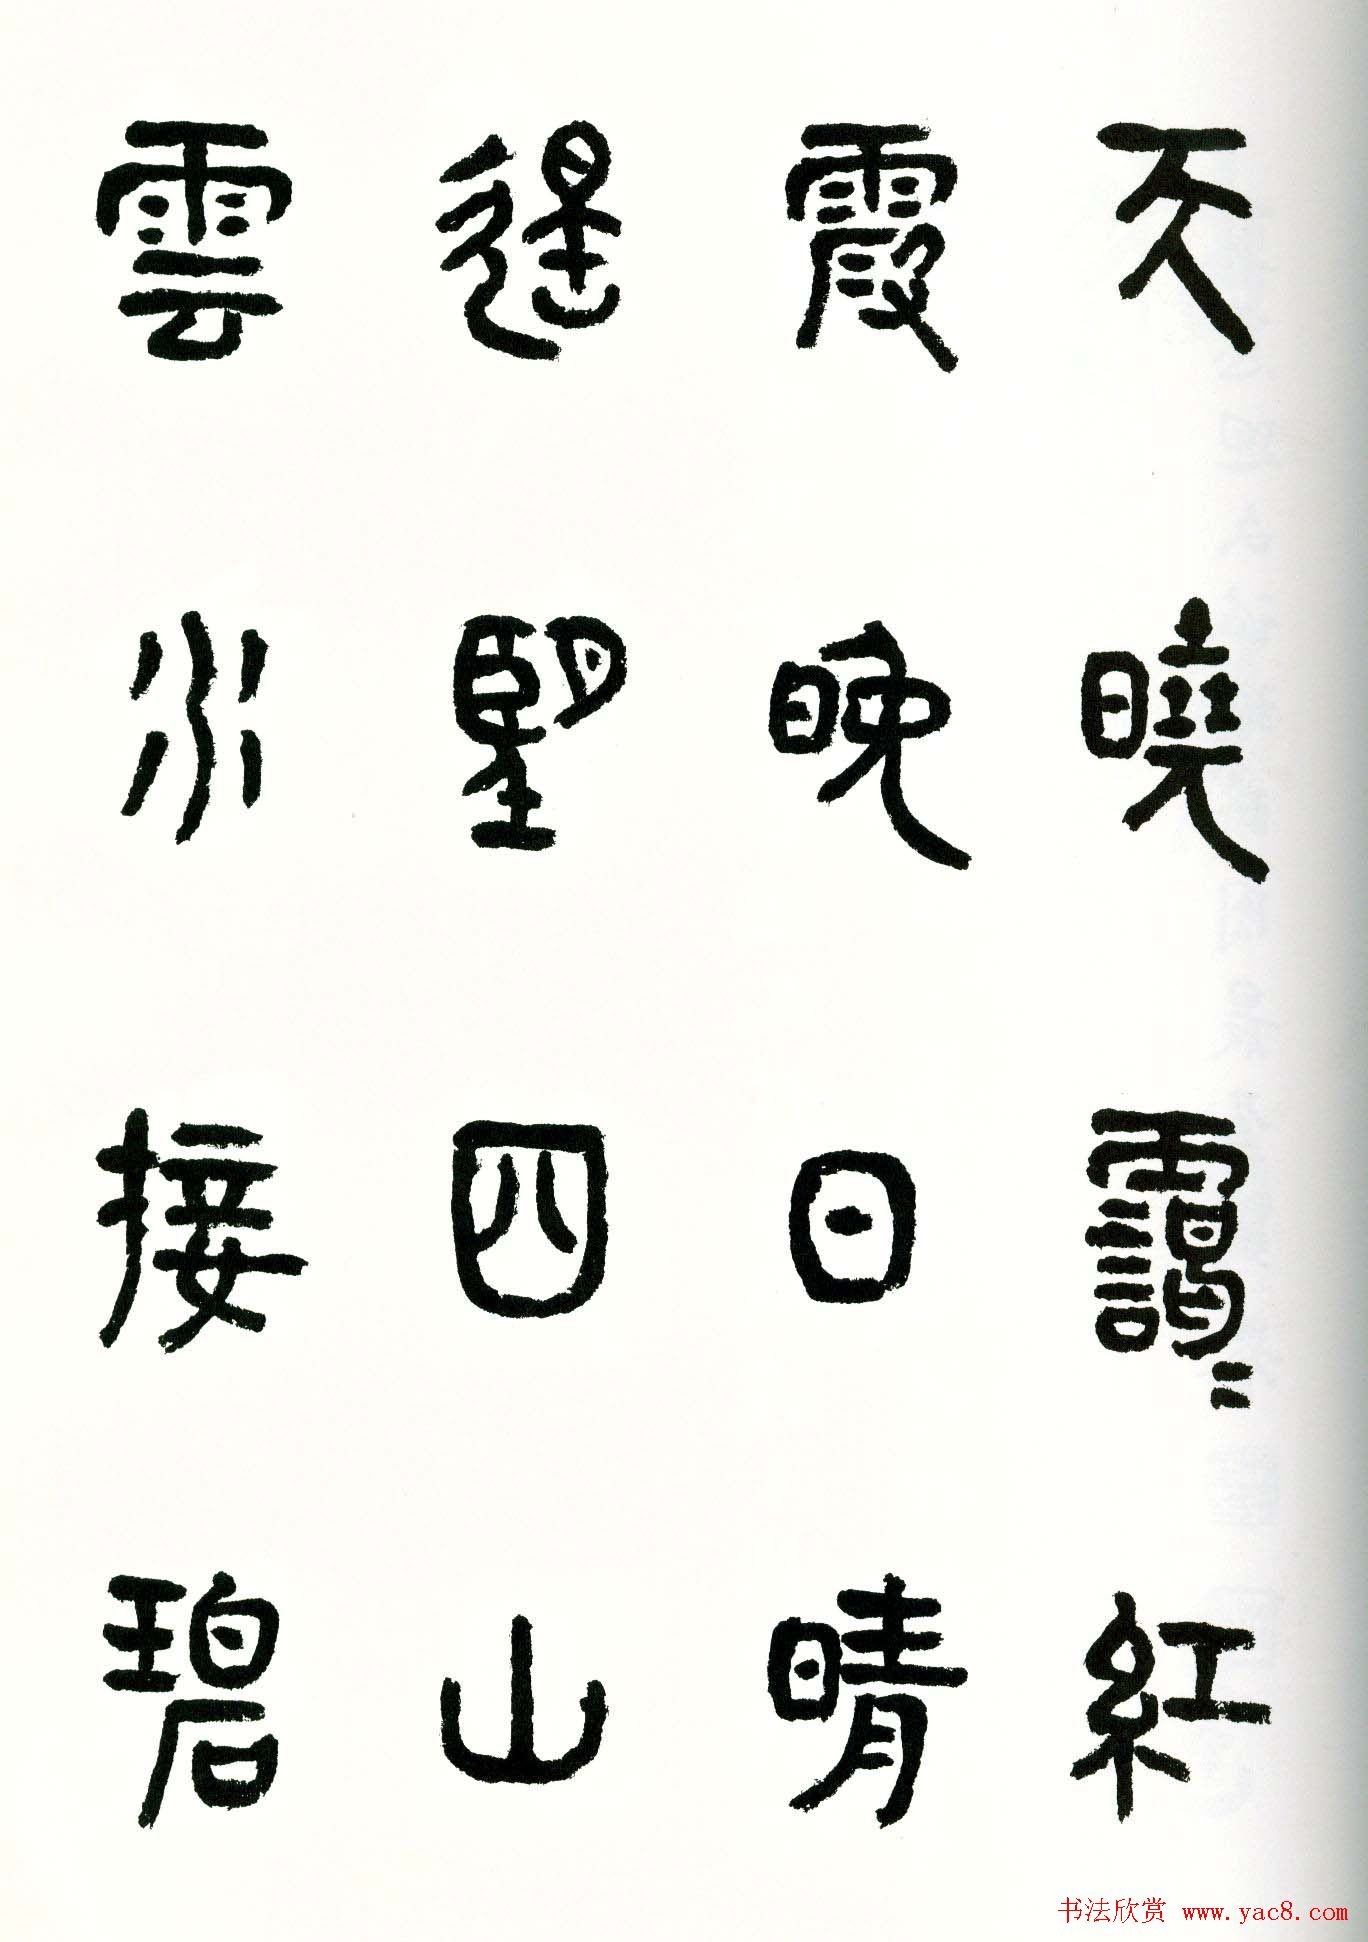 天曉靄〻紅
霞晚日晴
遙望四山
雲水接碧
书法欣赏 www.yac8.com